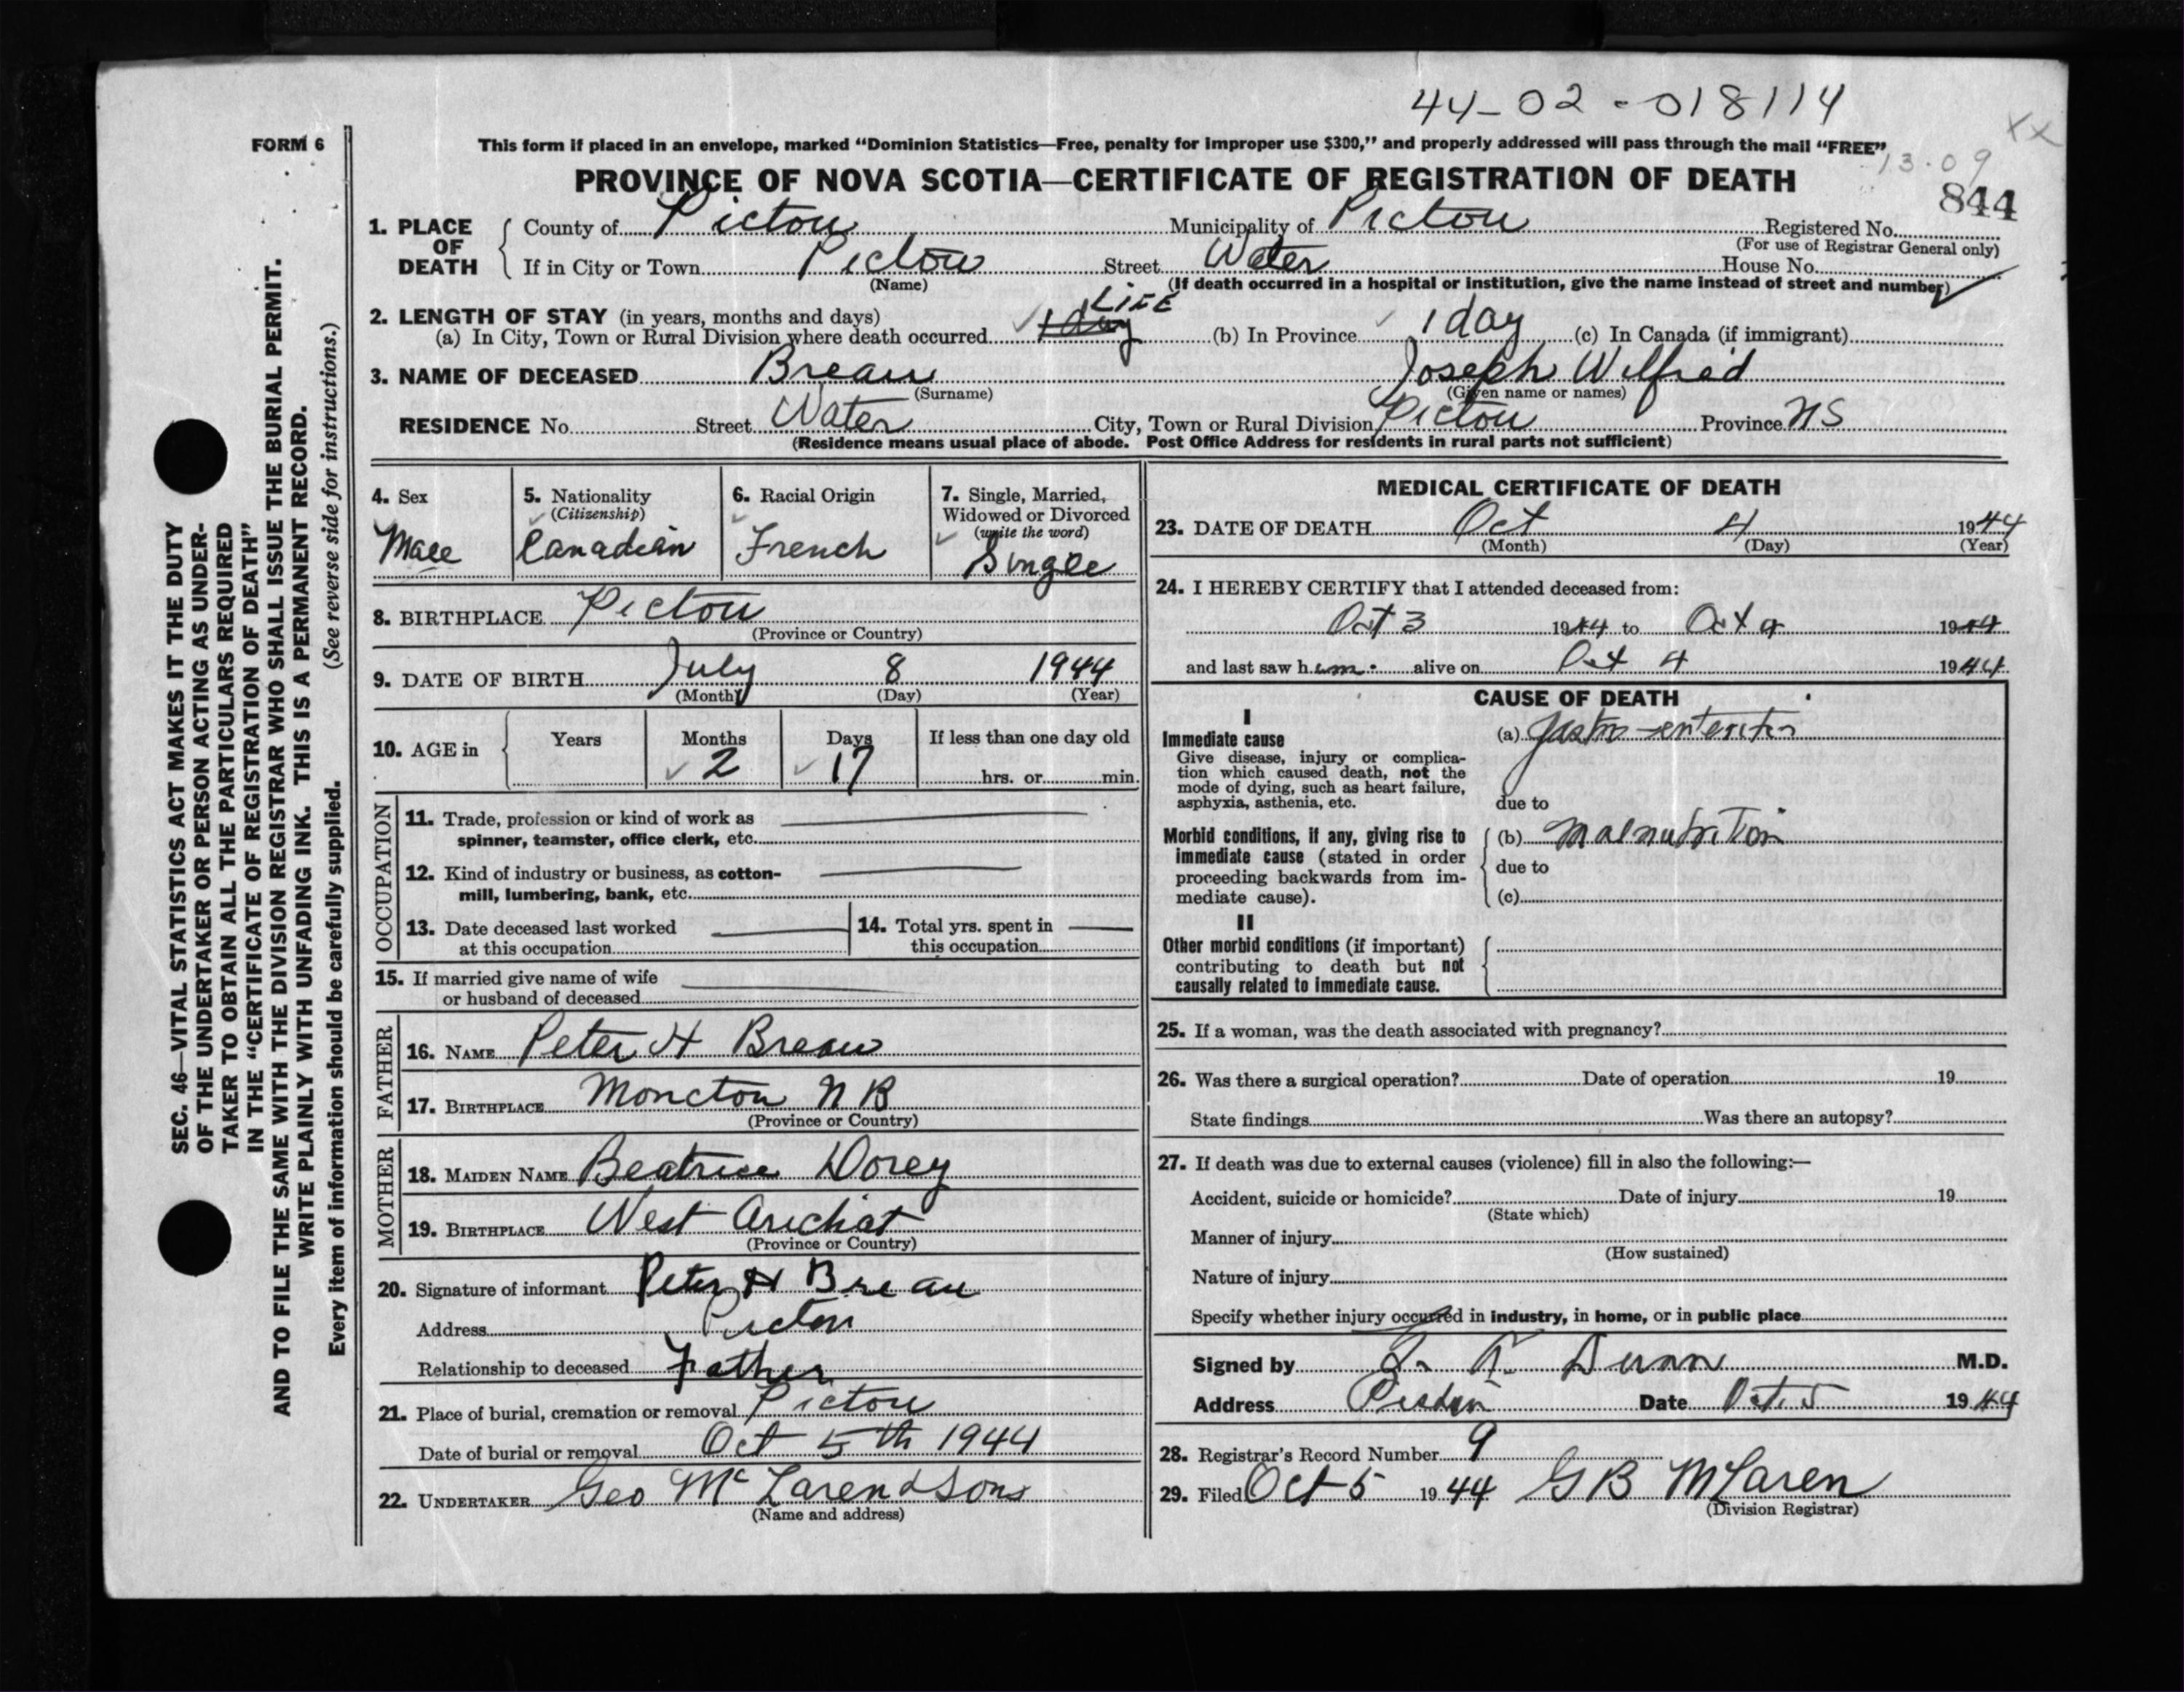 44-02-018114
XX
FORM 6
This form if placed in an envelope, marked “Dominion Statistics—Free, penalty for improper use $300,” and properly addressed will pass through the mail “FREE”
13.09
PROVINCE OF NOVA SCOTIA—CERTIFICATE OF REGISTRATION OF DEATH
844
1. PLACE OF DEATH County of Pictou Municipality of Pictou Registered No.
(For use of Registrar General only)
If in City or Town Pictou Street Water House No.
(Name) (If death occurred in a hospital or institution, give the name instead of street and number)
2. LENGTH OF STAY (in years, months and days) LIFE
(a) In City, Town or Rural Division where death occurred 1 day (b) In Province 1 day (c) In Canada (if immigrant)
3. NAME OF DECEASED Breau Joseph Wilfred
(Surname) (Given name or names)
RESIDENCE No. Street Water City, Town or Rural Division Pictou Province NS
(Residence means usual place of abode. Post Office Address for residents in rural parts not sufficient)
4. Sex
Male
5. Nationality
(Citizenship)
Canadian
6. Racial Origin
French
7. Single, Married,
Widowed or Divorced
(write the word)
Single
8. BIRTHPLACE Pictou
(Province or Country)
9. DATE OF BIRTH July 8 1944
(Month) (Day) (Year)
10. AGE in Years Months Days If less than one day old
2 17 hrs. or min.
OCCUPATION
11. Trade, profession or kind of work as
spinner, teamster, office clerk, etc.
12. Kind of industry or business, as cotton-
mill, lumbering, bank, etc.
13. Date deceased last worked
at this occupation
14. Total yrs. spent in
this occupation
15. If married give name of wife
or husband of deceased
FATHER
16. NAME Peter H Breau
17. BIRTHPLACE Moncton N B
(Province or Country)
MOTHER
18. MAIDEN NAME Beatrice Dorey
19. BIRTHPLACE West Arichat
(Province or Country)
20. Signature of informant Peter H Breau
Address Pictou
Relationship to deceased Father
21. Place of burial, cremation or removal Pictou
Date of burial or removal Oct 5th 1944
22. UNDERTAKER Geo McLaren & Sons
(Name and address)
MEDICAL CERTIFICATE OF DEATH
23. DATE OF DEATH Oct 4 1944
(Month) (Day) (Year)
24. I HEREBY CERTIFY that I attended deceased from:
Oct 3 1944 to Oct 4 1944
and last saw him alive on Oct 4 1944
CAUSE OF DEATH
I
Immediate cause
Give disease, injury or complica-
tion which caused death, not the
mode of dying, such as heart failure,
asphyxia, asthenia, etc.
(a) Gastro-enteritis
due to
Morbid conditions, if any, giving rise to
immediate cause (stated in order
proceeding backwards from im-
mediate cause).
(b) Malnutrition
due to
(c)
II
Other morbid conditions (if important)
contributing to death but not
causally related to immediate cause.
25. If a woman, was the death associated with pregnancy?
26. Was there a surgical operation? Date of operation 19
State findings Was there an autopsy?
27. If death was due to external causes (violence) fill in also the following:—
Accident, suicide or homicide? Date of injury 19
(State which)
Manner of injury
(How sustained)
Nature of injury
Specify whether injury occurred in industry, in home, or in public place
Signed by Dunn M.D.
Address Pictou Date Oct. 5 1944
28. Registrar's Record Number 9
29. Filed Oct 5 1944 G B McLaren
(Division Registrar)
SEC. 46—VITAL STATISTICS ACT MAKES IT THE DUTY
OF THE UNDERTAKER OR PERSON ACTING AS UNDER-
TAKER TO OBTAIN ALL THE PARTICULARS REQUIRED
IN THE “CERTIFICATE OF REGISTRATION OF DEATH”
AND TO FILE THE SAME WITH THE DIVISION REGISTRAR WHO SHALL ISSUE THE BURIAL PERMIT.
WRITE PLAINLY WITH UNFADING INK. THIS IS A PERMANENT RECORD.
Every item of information should be carefully supplied. (See reverse side for instructions.)